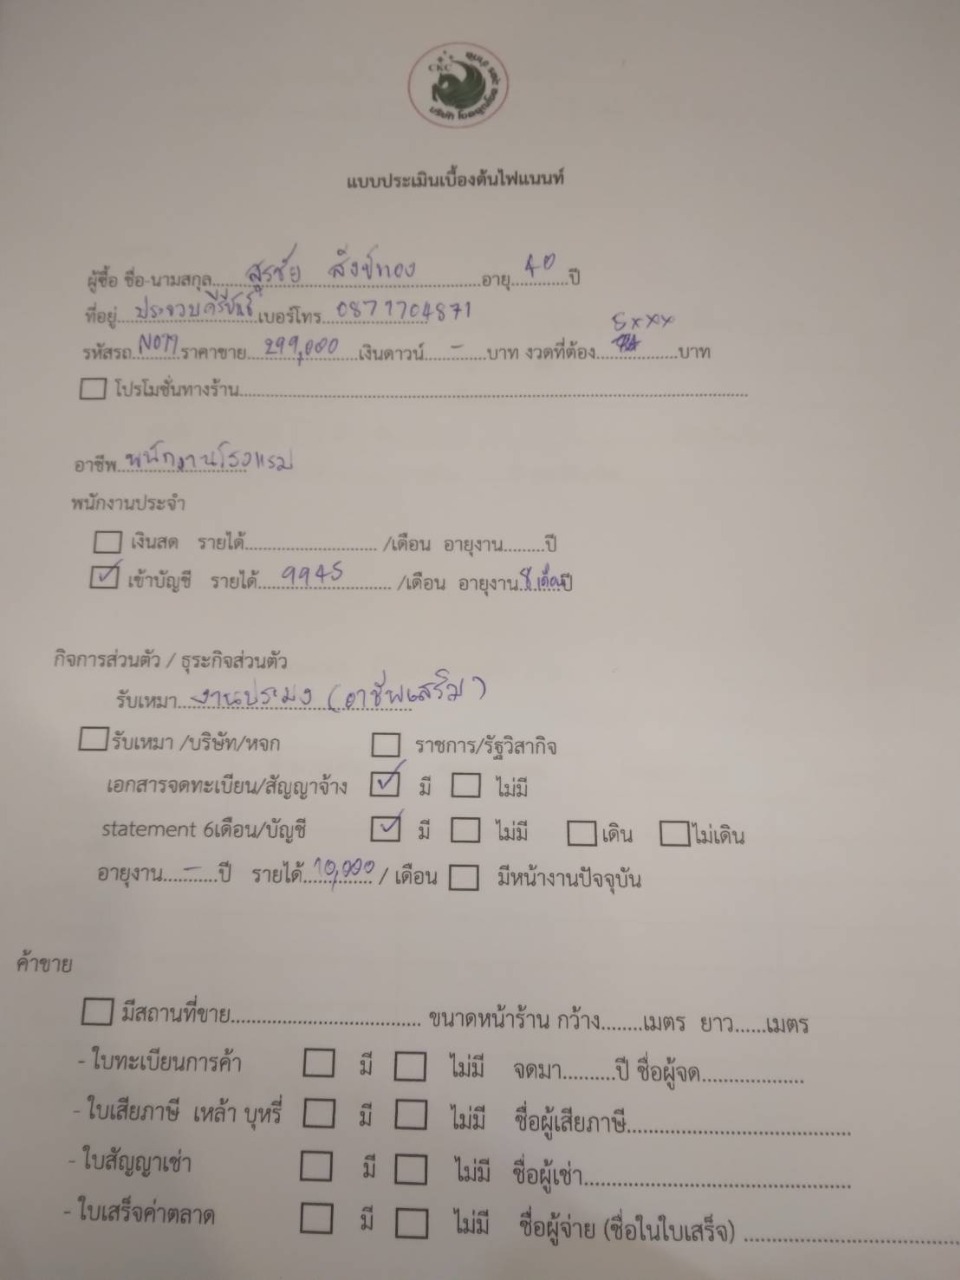 CKC
แบบประเมินเบื้องต้นไฟแนนท์
ผู้ซื้อ ชื่อ-นามสกุล....สุรชัย สิงข์ทอง....อายุ..40..ปี
ที่อยู่..ประจวบคีรีขันธ์..เบอร์โทร..0871704871
รหัสรถ..ราคาขาย..299,000..เงินดาวน์..-..บาท งวดที่ต้อง..5xxx..บาท
☐ โปรโมชั่นทางร้าน....
อาชีพ..พนักงานโรงแรม
พนักงานประจำ
☐ เงินสด รายได้..../เดือน อายุงาน....ปี
☑ เข้าบัญชี รายได้..9945../เดือน อายุงาน..เดือนปี
กิจการส่วนตัว / ธุระกิจส่วนตัว
รับเหมา..งานประมง (อาชีพเสริม)
☐ รับเหมา /บริษัท/หจก ☐ ราชการ/รัฐวิสากิจ
เอกสารจดทะเบียน/สัญญาจ้าง ☑ มี ☐ ไม่มี
statement 6เดือน/บัญชี ☑ มี ☐ ไม่มี ☐ เดิน ☐ ไม่เดิน
อายุงาน..-..ปี รายได้..10,000../ เดือน ☐ มีหน้างานปัจจุบัน
ค้าขาย
☐ มีสถานที่ขาย.... ขนาดหน้าร้าน กว้าง....เมตร ยาว....เมตร
- ใบทะเบียนการค้า ☐ มี ☐ ไม่มี จดมา....ปี ชื่อผู้จด....
- ใบเสียภาษี เหล้า บุหรี่ ☐ มี ☐ ไม่มี ชื่อผู้เสียภาษี....
- ใบสัญญาเช่า ☐ มี ☐ ไม่มี ชื่อผู้เช่า....
- ใบเสร็จค่าตลาด ☐ มี ☐ ไม่มี ชื่อผู้จ่าย (ชื่อในใบเสร็จ) ....